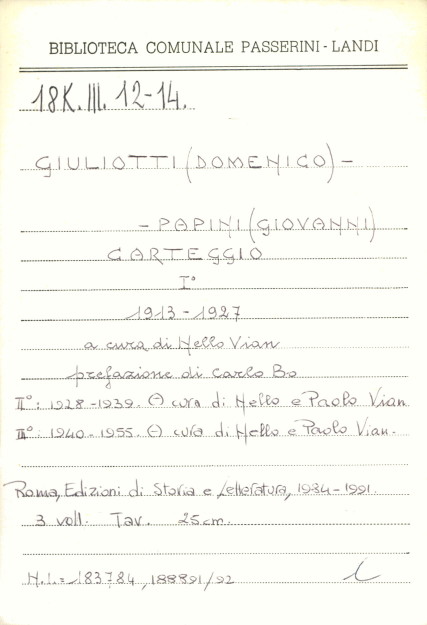 BIBLIOTECA COMUNALE PASSERINI - LANDI
18K. III. 12-14.
GIULIOTTI (DOMENICO) -
- PAPINI (GIOVANNI)
CARTEGGIO
I°
1913 - 1927
a cura di Nello Vian
prefazione di Carlo Bo
II°: 1928-1939. A cura di Nello e Paolo Vian
III°: 1940-1955. A cura di Nello e Paolo Vian.
Roma, Edizioni di Storia e Letteratura, 1984-1991.
3 voll. Tav. 25cm.
N.I.= 183784, 188891/92